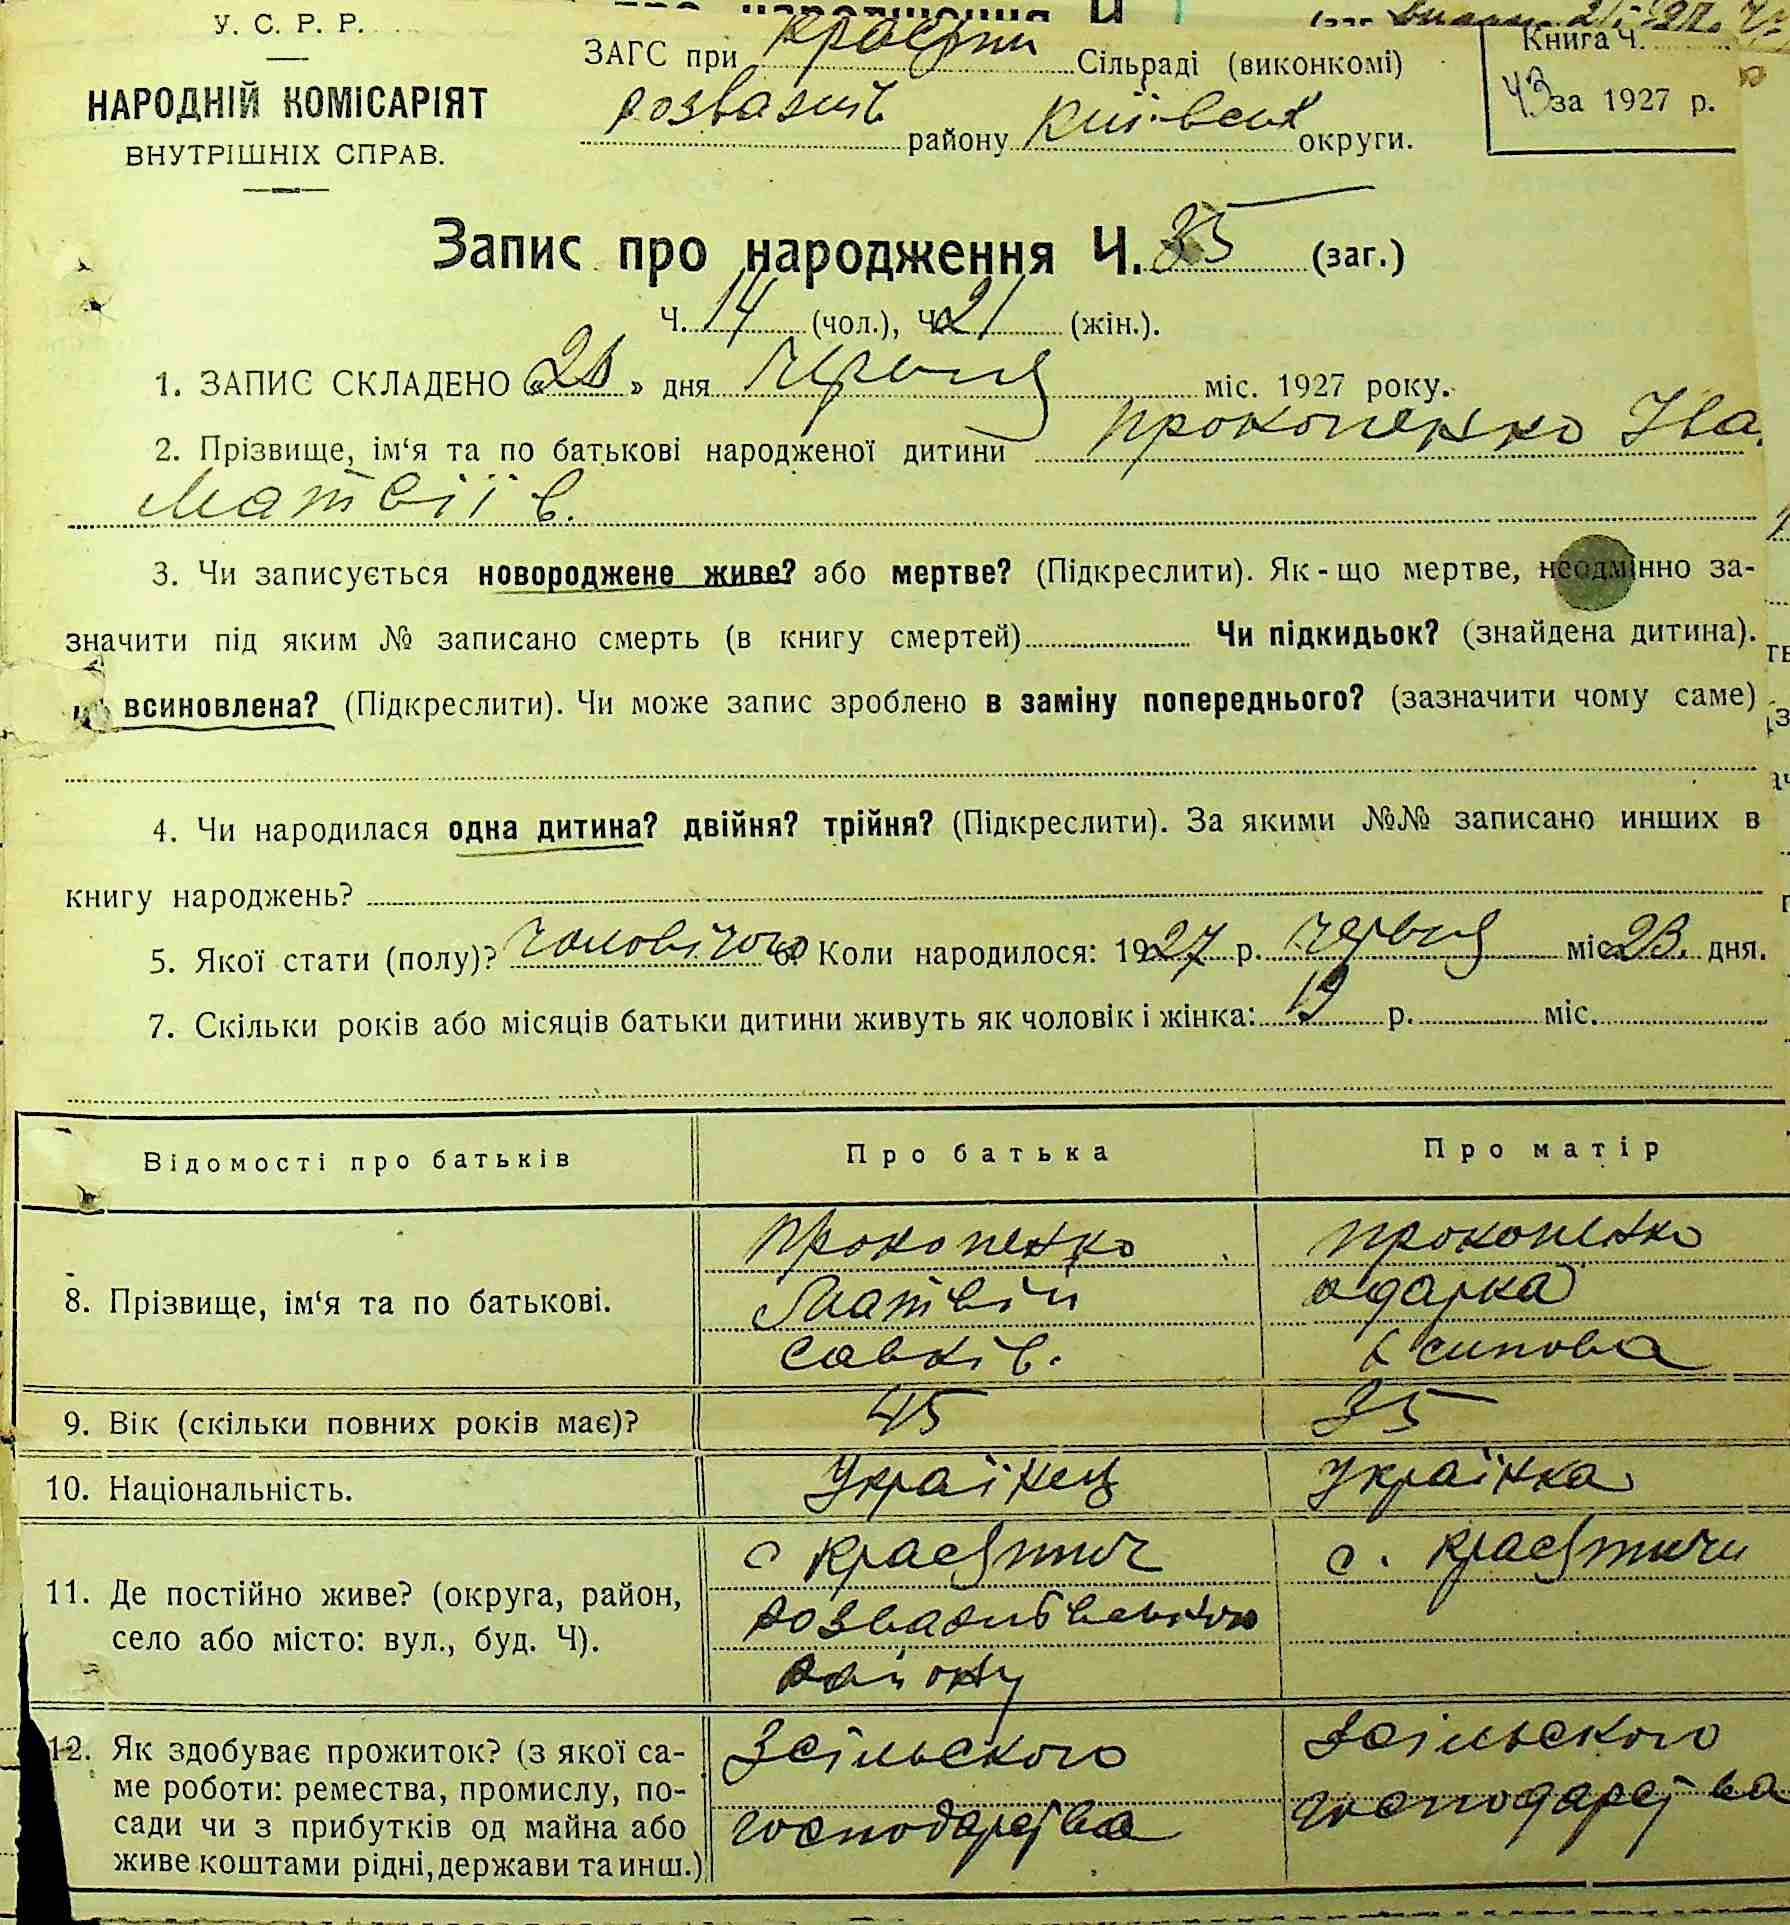 У. С. Р. Р.
НАРОДНІЙ КОМІСАРІЯТ
ВНУТРІШНІХ СПРАВ.
ЗАГС при Красят Сільраді (виконкомі)
Розважів району Київськ округи.
Книга Ч.
43 за 1927 р.
Запис про народження Ч. 35 (заг.)
Ч. 14 (чол.), Ч. 21 (жін.).
1. ЗАПИС СКЛАДЕНО « » дня Червня міс. 1927 року.
2. Прізвище, ім‘я та по батькові народженої дитини Прокопенко Іва
Матвіїв.
3. Чи записується новороджене живе? або мертве? (Підкреслити). Як-що мертве, неодмінно за-
значити під яким № записано смерть (в книгу смертей) Чи підкидьок? (знайдена дитина).
всиновлена? (Підкреслити). Чи може запис зроблено в заміну попереднього? (зазначити чому саме)
4. Чи народилася одна дитина? двійня? трійня? (Підкреслити). За якими №№ записано инших в
книгу народжень?
5. Якої стати (полу)? Чоловічого 6. Коли народилося: 1927 р. Червня міс. 23. дня.
7. Скільки років або місяців батьки дитини живуть як чоловік і жінка: 19 р. міс.
Відомості про батьків Про батька Про матір
8. Прізвище, ім‘я та по батькові.
Прокопенко Прокопенко
Матвій Одарка
Савків. Осипова
9. Вік (скільки повних років має)? 45 35
10. Національність. Українець Українка
11. Де постійно живе? (округа, район,
село або місто: вул., буд. Ч).
с Красятич с. Красятичи
Розважівського
району
12. Як здобуває прожиток? (з якої са-
ме роботи: ремества, промислу, по-
сади чи з прибутків од майна або
живе коштами рідні, держави та инш.)
Зсільского Зсільского
господарства господарства